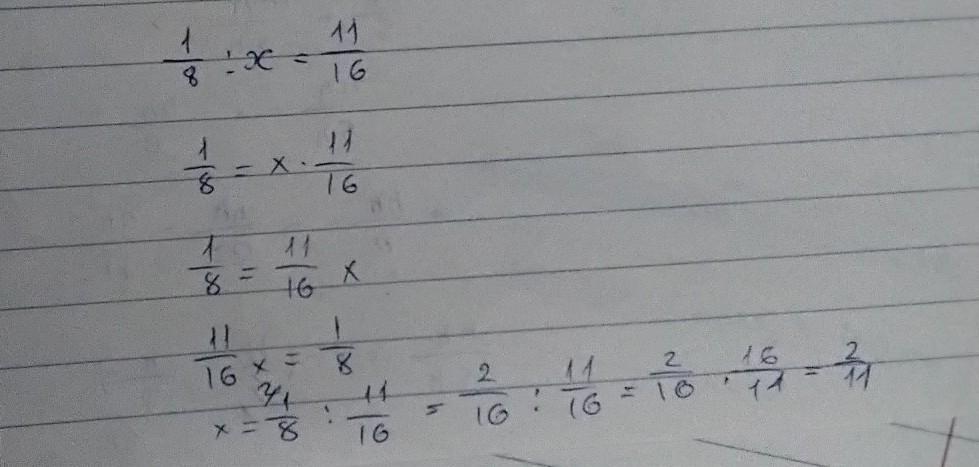 1/8 : x = 11/16
1/8 = x · 11/16
1/8 = 11/16 x
11/16 x = 1/8
x = 1/8 : 11/16 = 2/16 : 11/16 = 2/16 · 16/11 = 2/11